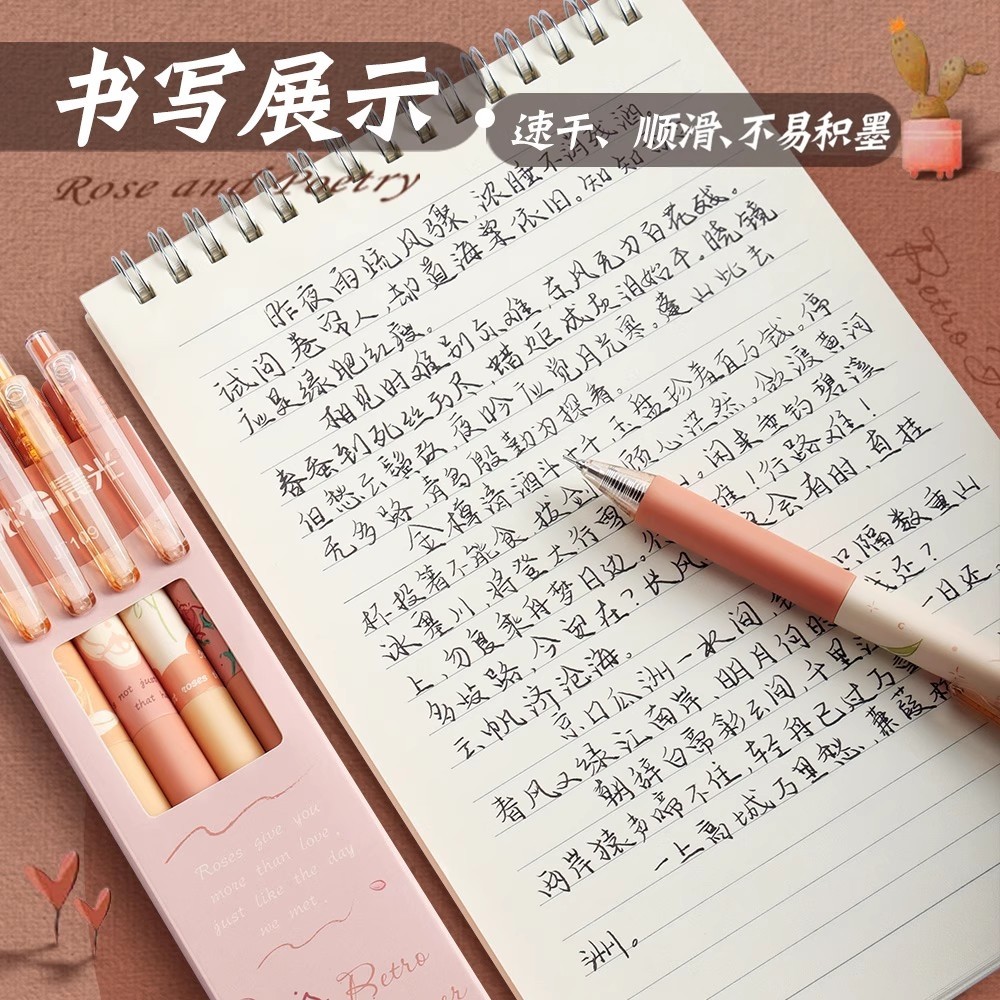 书写展示
·速干、顺滑、不易积墨
Rose and Poetry
昨夜雨疏风骤 浓睡不消残酒
试问卷帘人,却道海棠依旧。知
应是绿肥红瘦。
相见时难别亦难,东风无力百花残。
春蚕到死丝方尽,蜡炬成灰泪始干。晓镜
但愁云鬓改,夜吟应觉月光寒。蓬山此去
无多路,青鸟殷勤为探看。
金樽清酒斗 千,玉盘珍羞直万钱。停
杯投箸不能食,拔剑 顾心茫然。欲渡黄河
冰塞川,将登太行雪 。闲来垂钓碧溪
上,勿复乘舟梦日边。 难!行路难!
多歧路,今安在?长风 会有时,直挂
云帆济沧海。
京口瓜洲一水间, 只隔数重山
春风又绿江南岸,明月何时 还?
朝辞白帝彩云间,千里江 一日还。
两岸猿声啼不住,轻舟已过万重
一上高城万里愁,蒹葭杨
洲。
晨光
109
not jus
that
roses
Roses give you
more than love,
just like the day
we met.
Retro
Retro